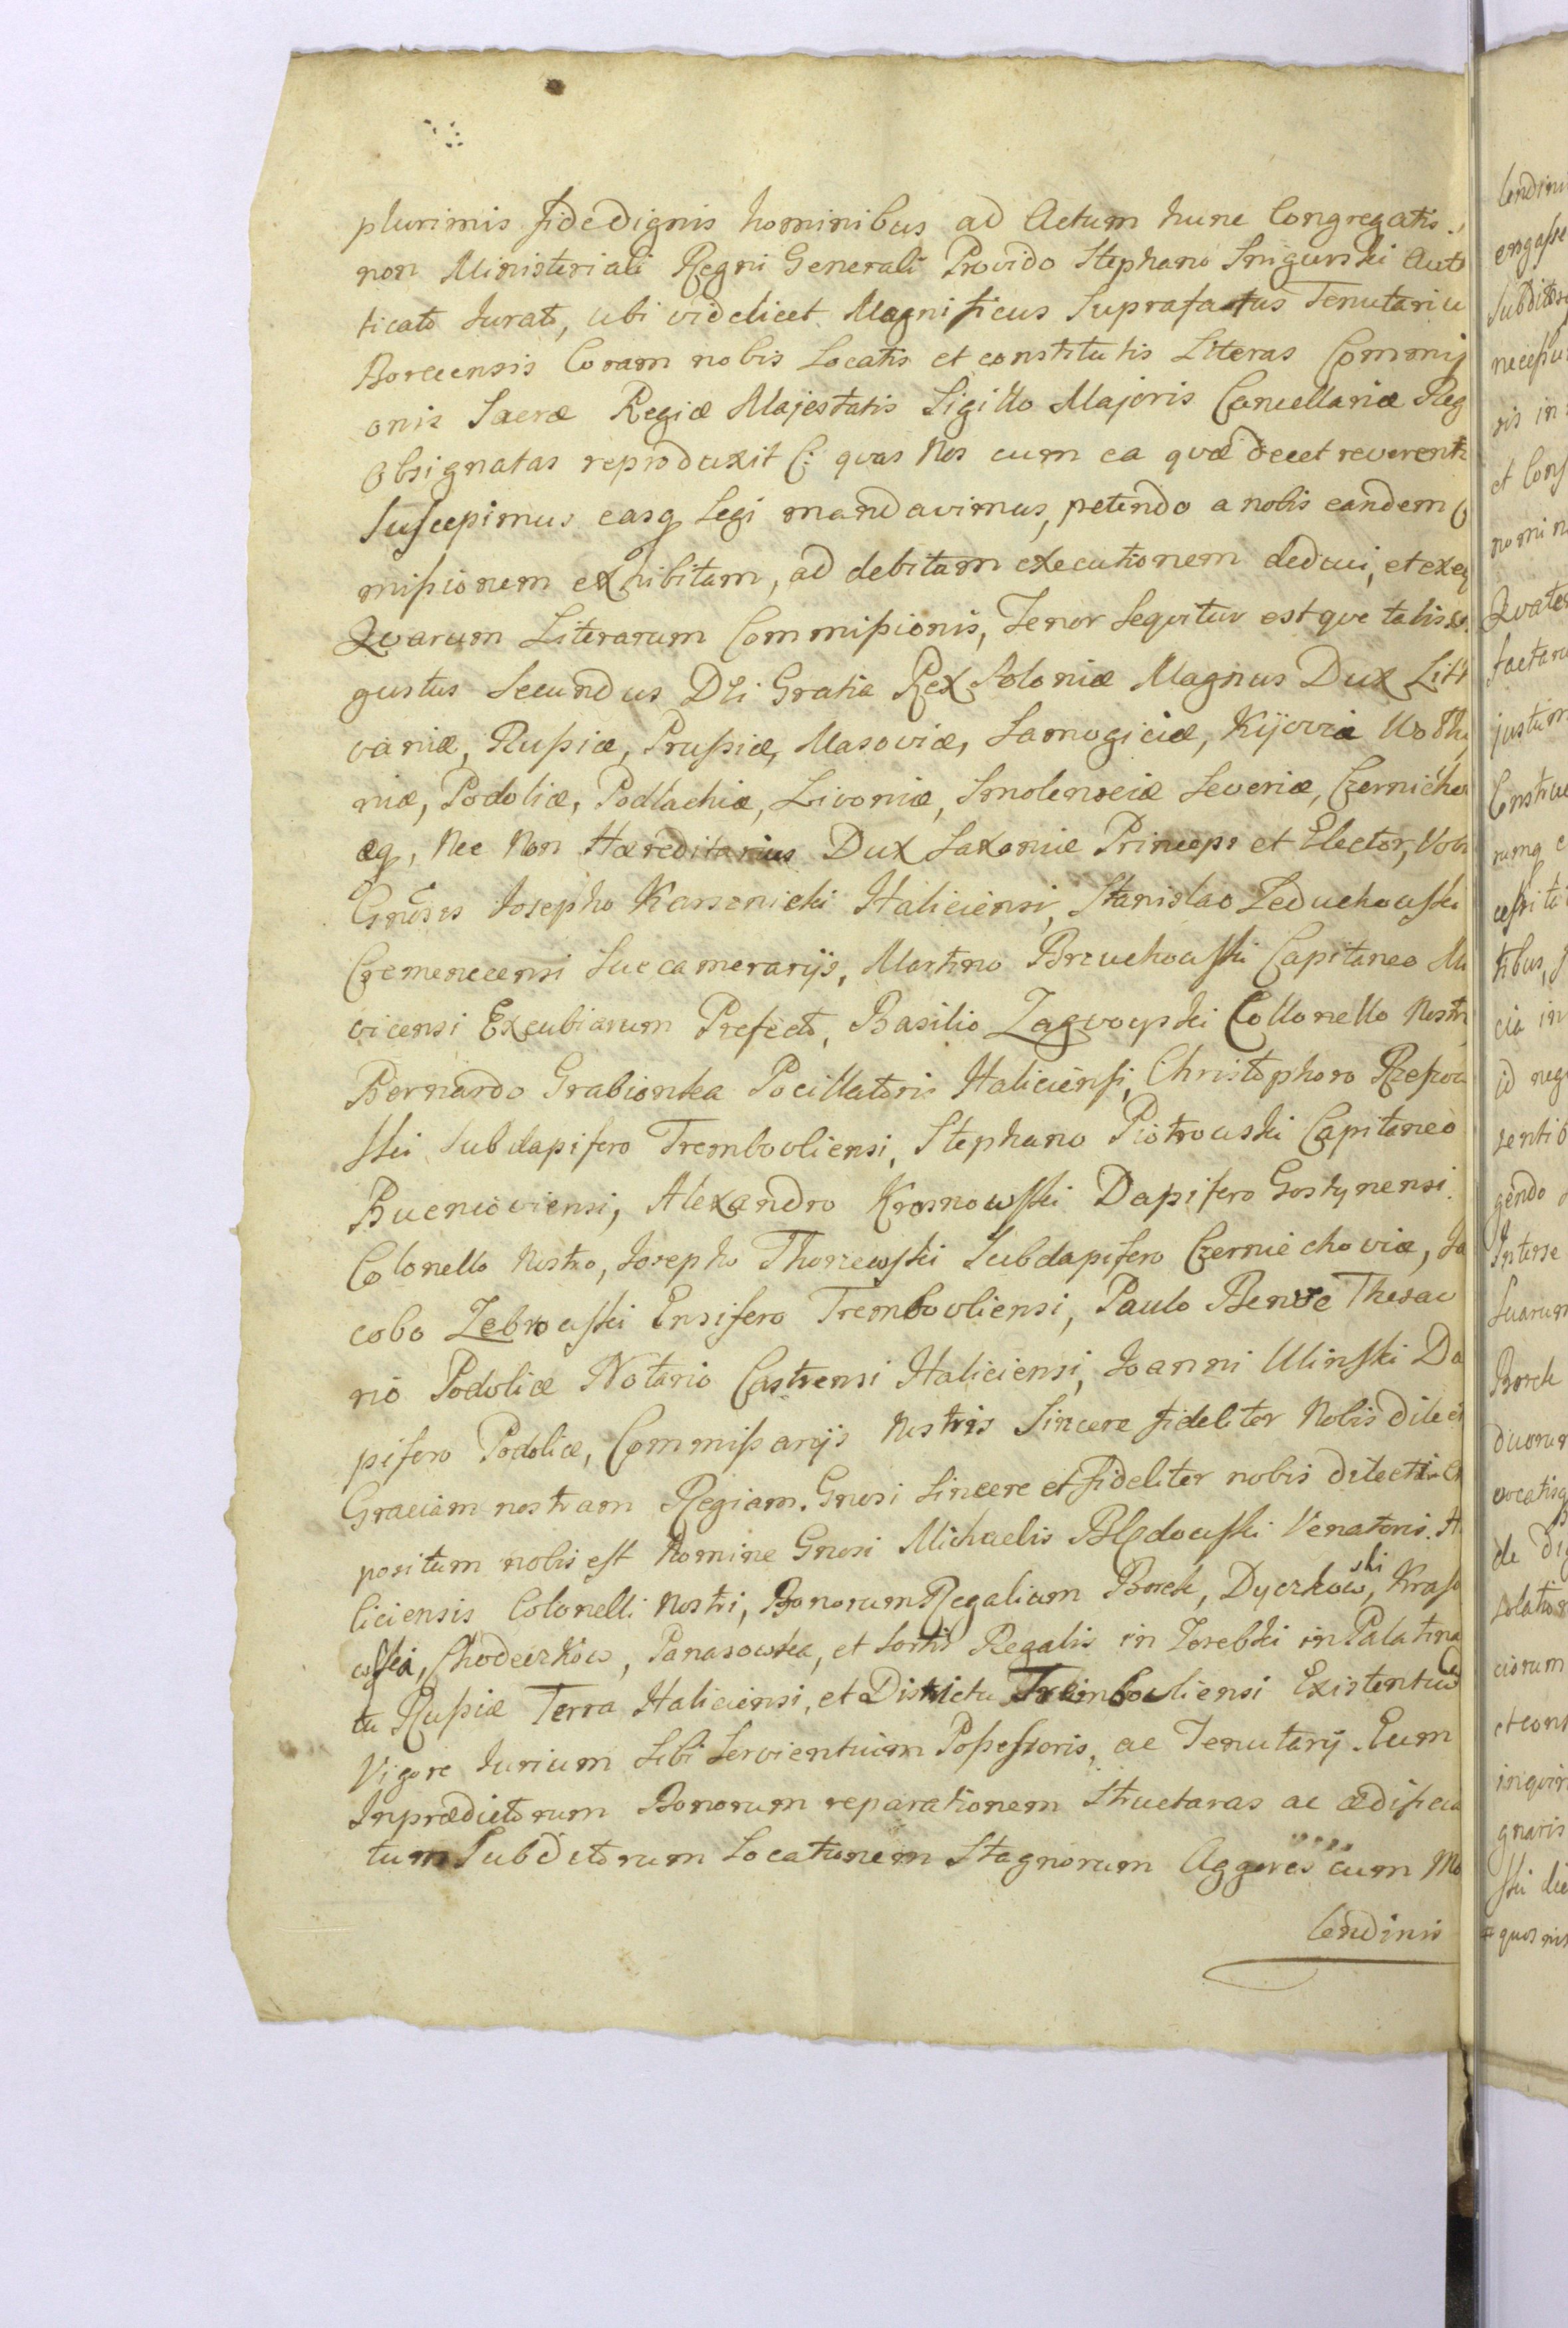 plurimis fidedignis hominibus ad Actum hunc Congregatis.,
non Ministeriali Regni Generali Provido Stephano Snigurski Aut
ticato Jurato, ubi videlicet Magnificus Suprafatus Tenutariu
Borecensis Coram nobis Locatis et constitutis Literas Commiſ
onis Sacræ Regiæ Majestatis Sigillo Majoris Cancellariæ Reg
Obsignatas reproduxit C: quas Nos cum ea quæ decet reverenti
Suſcepimus easq Legi mandavimus, petendo a nobis eandem C
miſsionem exhibitam, ad debitam executionem deduci, et exeq
Quarum Literarum Commiſsionis, Tenor Sequitur estque talis
gustus Secundus DEi Gratia Rex Poloniæ Magnus Dux Litt
vaniæ, Ruſsiæ, Pruſsiæ, Masoviæ, Samogiciæ, Kijoviæ Wolhy
niæ, Podoliæ, Podlachiæ, Livoniæ, Smolensciæ Severiæ, Czerniche
æq, Nec Non Hæreditarius Dux Saxoniæ Princeps et Elector, Vob
Gnosis Josepho Karsznicki Haliciensi, Stanislao Leduchowſki
Czemenecensi Succamerarijs, Martino Brzuchowſki Capitaneo
vicensi Excubiarum Prefecto, Basilio Zagwoyski Collonello Nostr
Bernardo Grabionka Pocillatoris Haliciensi, Christophoro Rzepec
ſki Subdapifero Trembovliensi, Stephano Piotrowski Capitaneo
Bucnioviensi, Alexandro Krosnowſki Dapifero Gostynensi
Colonello Nostro, Josepho Thorzewſki Subdapifero Czerniechoviæ, Ja
cobo Zebrowſki Ensifero Trembovliensi, Paulo Benoe Thesau
rio Podoliæ Notario Castrensi Haliciensi, Joanni Ulinſki Da
pifero Podoliæ, Commiſsarijs Nostris Sincere fideliter Nobis dilec
Graciam nostram Regiam. Gnosi Sincere et fideliter nobis dilecti. E
positum nobis eſt Nomine Gnosi Michaelis Błędowſki Venatoris. H
liciensis Colonelli Nostri, Bonorum Regalium Borek, Dyczkowski, Kraſo
wſka, Chodeczkow, Panasowka, et Sortis Regalis in Jozebki in Palatina
tu Ruſsiæ Terra Haliciensi, et Districtu Trembovliensi Existentiu
Vigore Jurium Sibi Servientium Poſseſsoris, ac Tenutarij. Eum
Inprædictorum Bonorum reparationem Structuras ac ædificia
tum Subditorum Locationem Stagnorum Aggeres cum Mo
lendinis